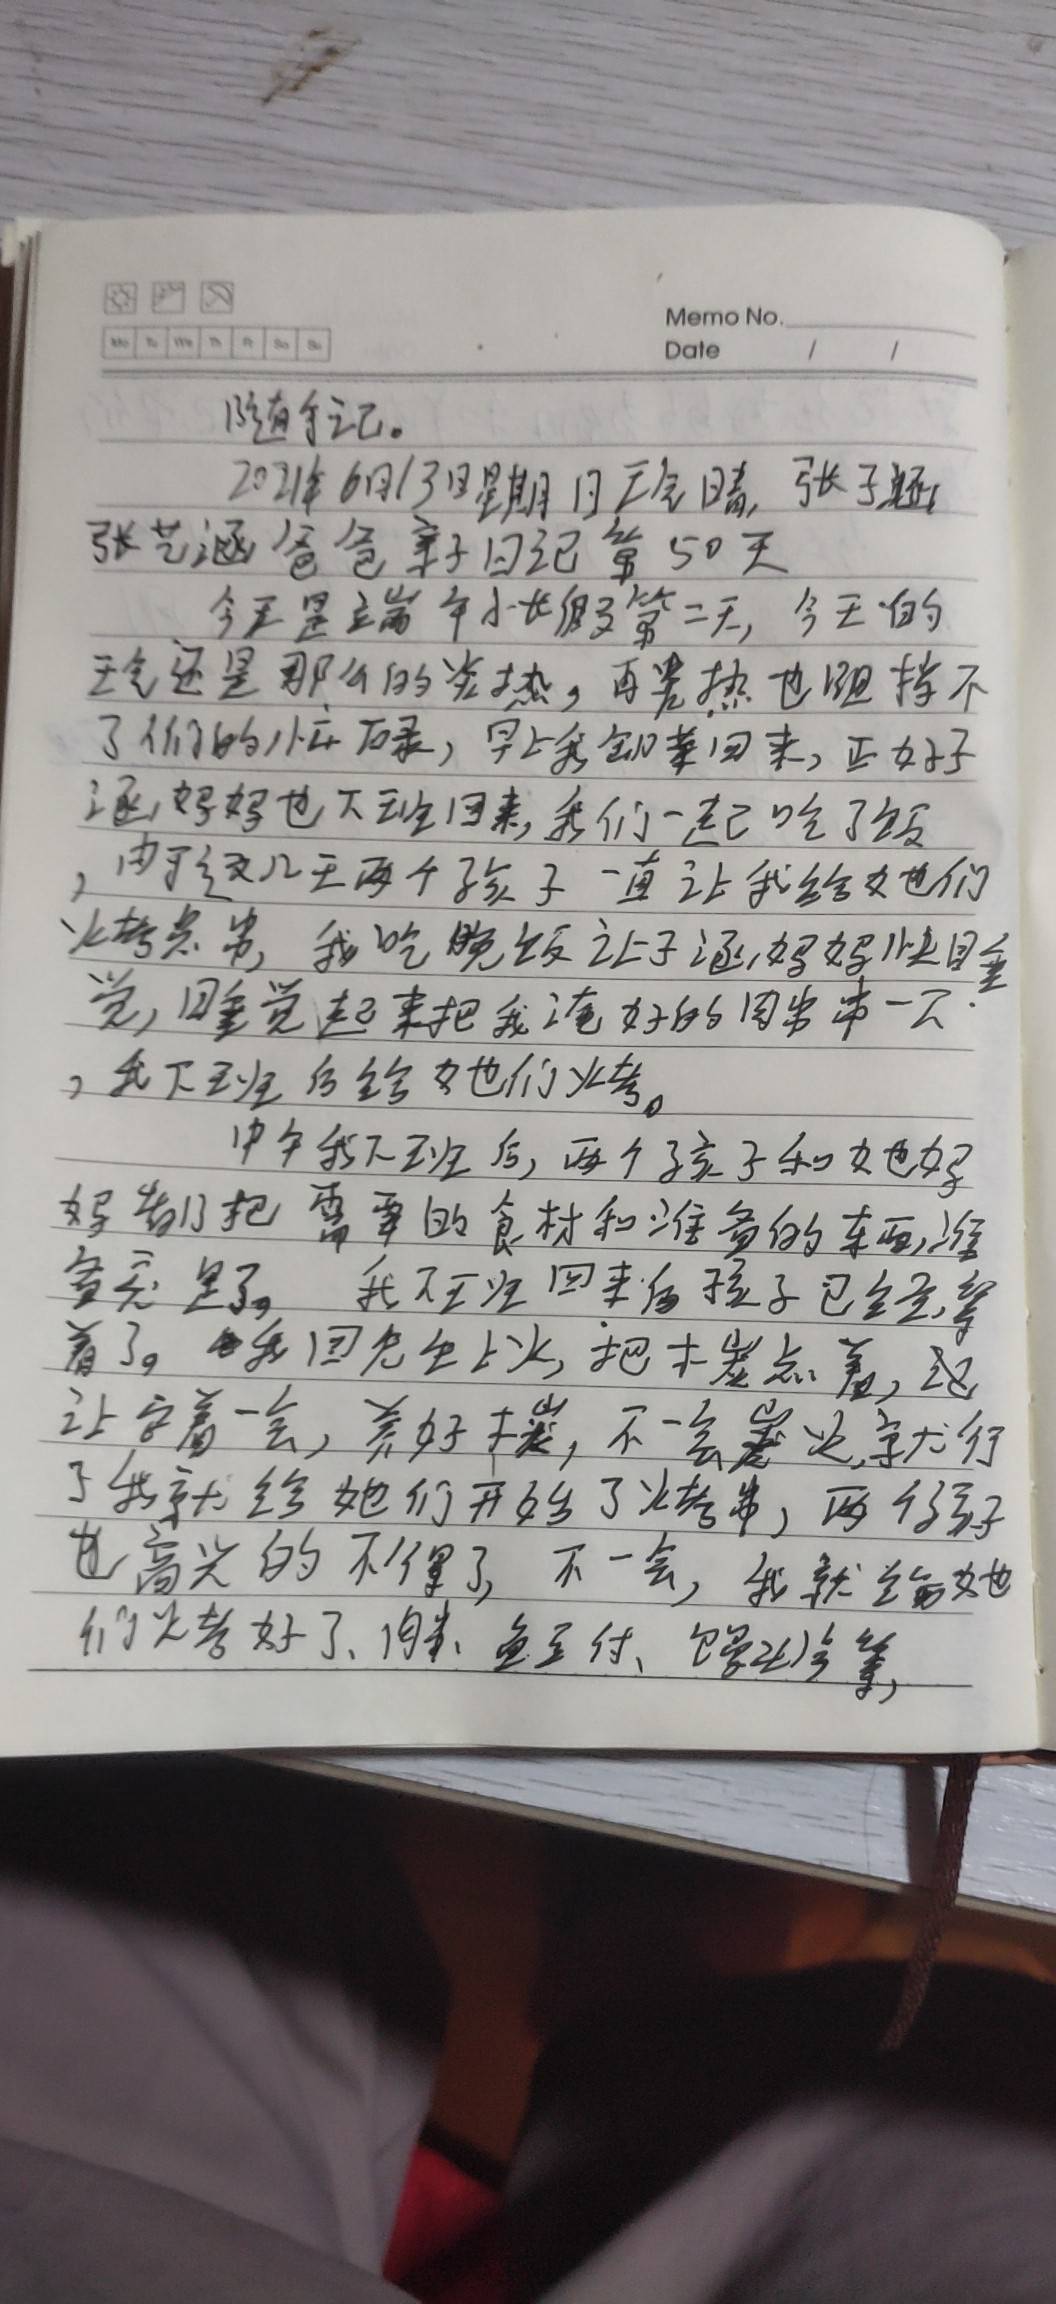 Mo Tu We Th Fr Sa Su
Memo No.
Date / /
随手记。
2021年6月13日星期日天气晴,张子涵
张艺涵爸爸亲子日记第50天
今天是端午小长假第二天,今天的
天气还是那么的炎热,再炎热也阻挡不
了们的忙碌,早上我卸菜回来,正好子
涵妈妈也下班回来,我们一起吃了饭
,由于这几天两个孩子一直让我给她们
烧烤点串,我吃晚饭让子涵妈妈快睡
觉,睡觉起来把我淹好的肉串串一下
,我下班后给她们烤。
中午我下班后,两个孩子和她妈
妈先把需要的食材和准备的东西准
备完毕了。我下班回来后孩子已经等
着了。我回先生上火,把木炭点着,还
让它着一会,养好木炭,不一会炭火就行
了我就给她们开始了烧烤串,两个孩子
也高兴的不得了,不一会,我就给她
们烤好了、肉串、鱼豆付、等,